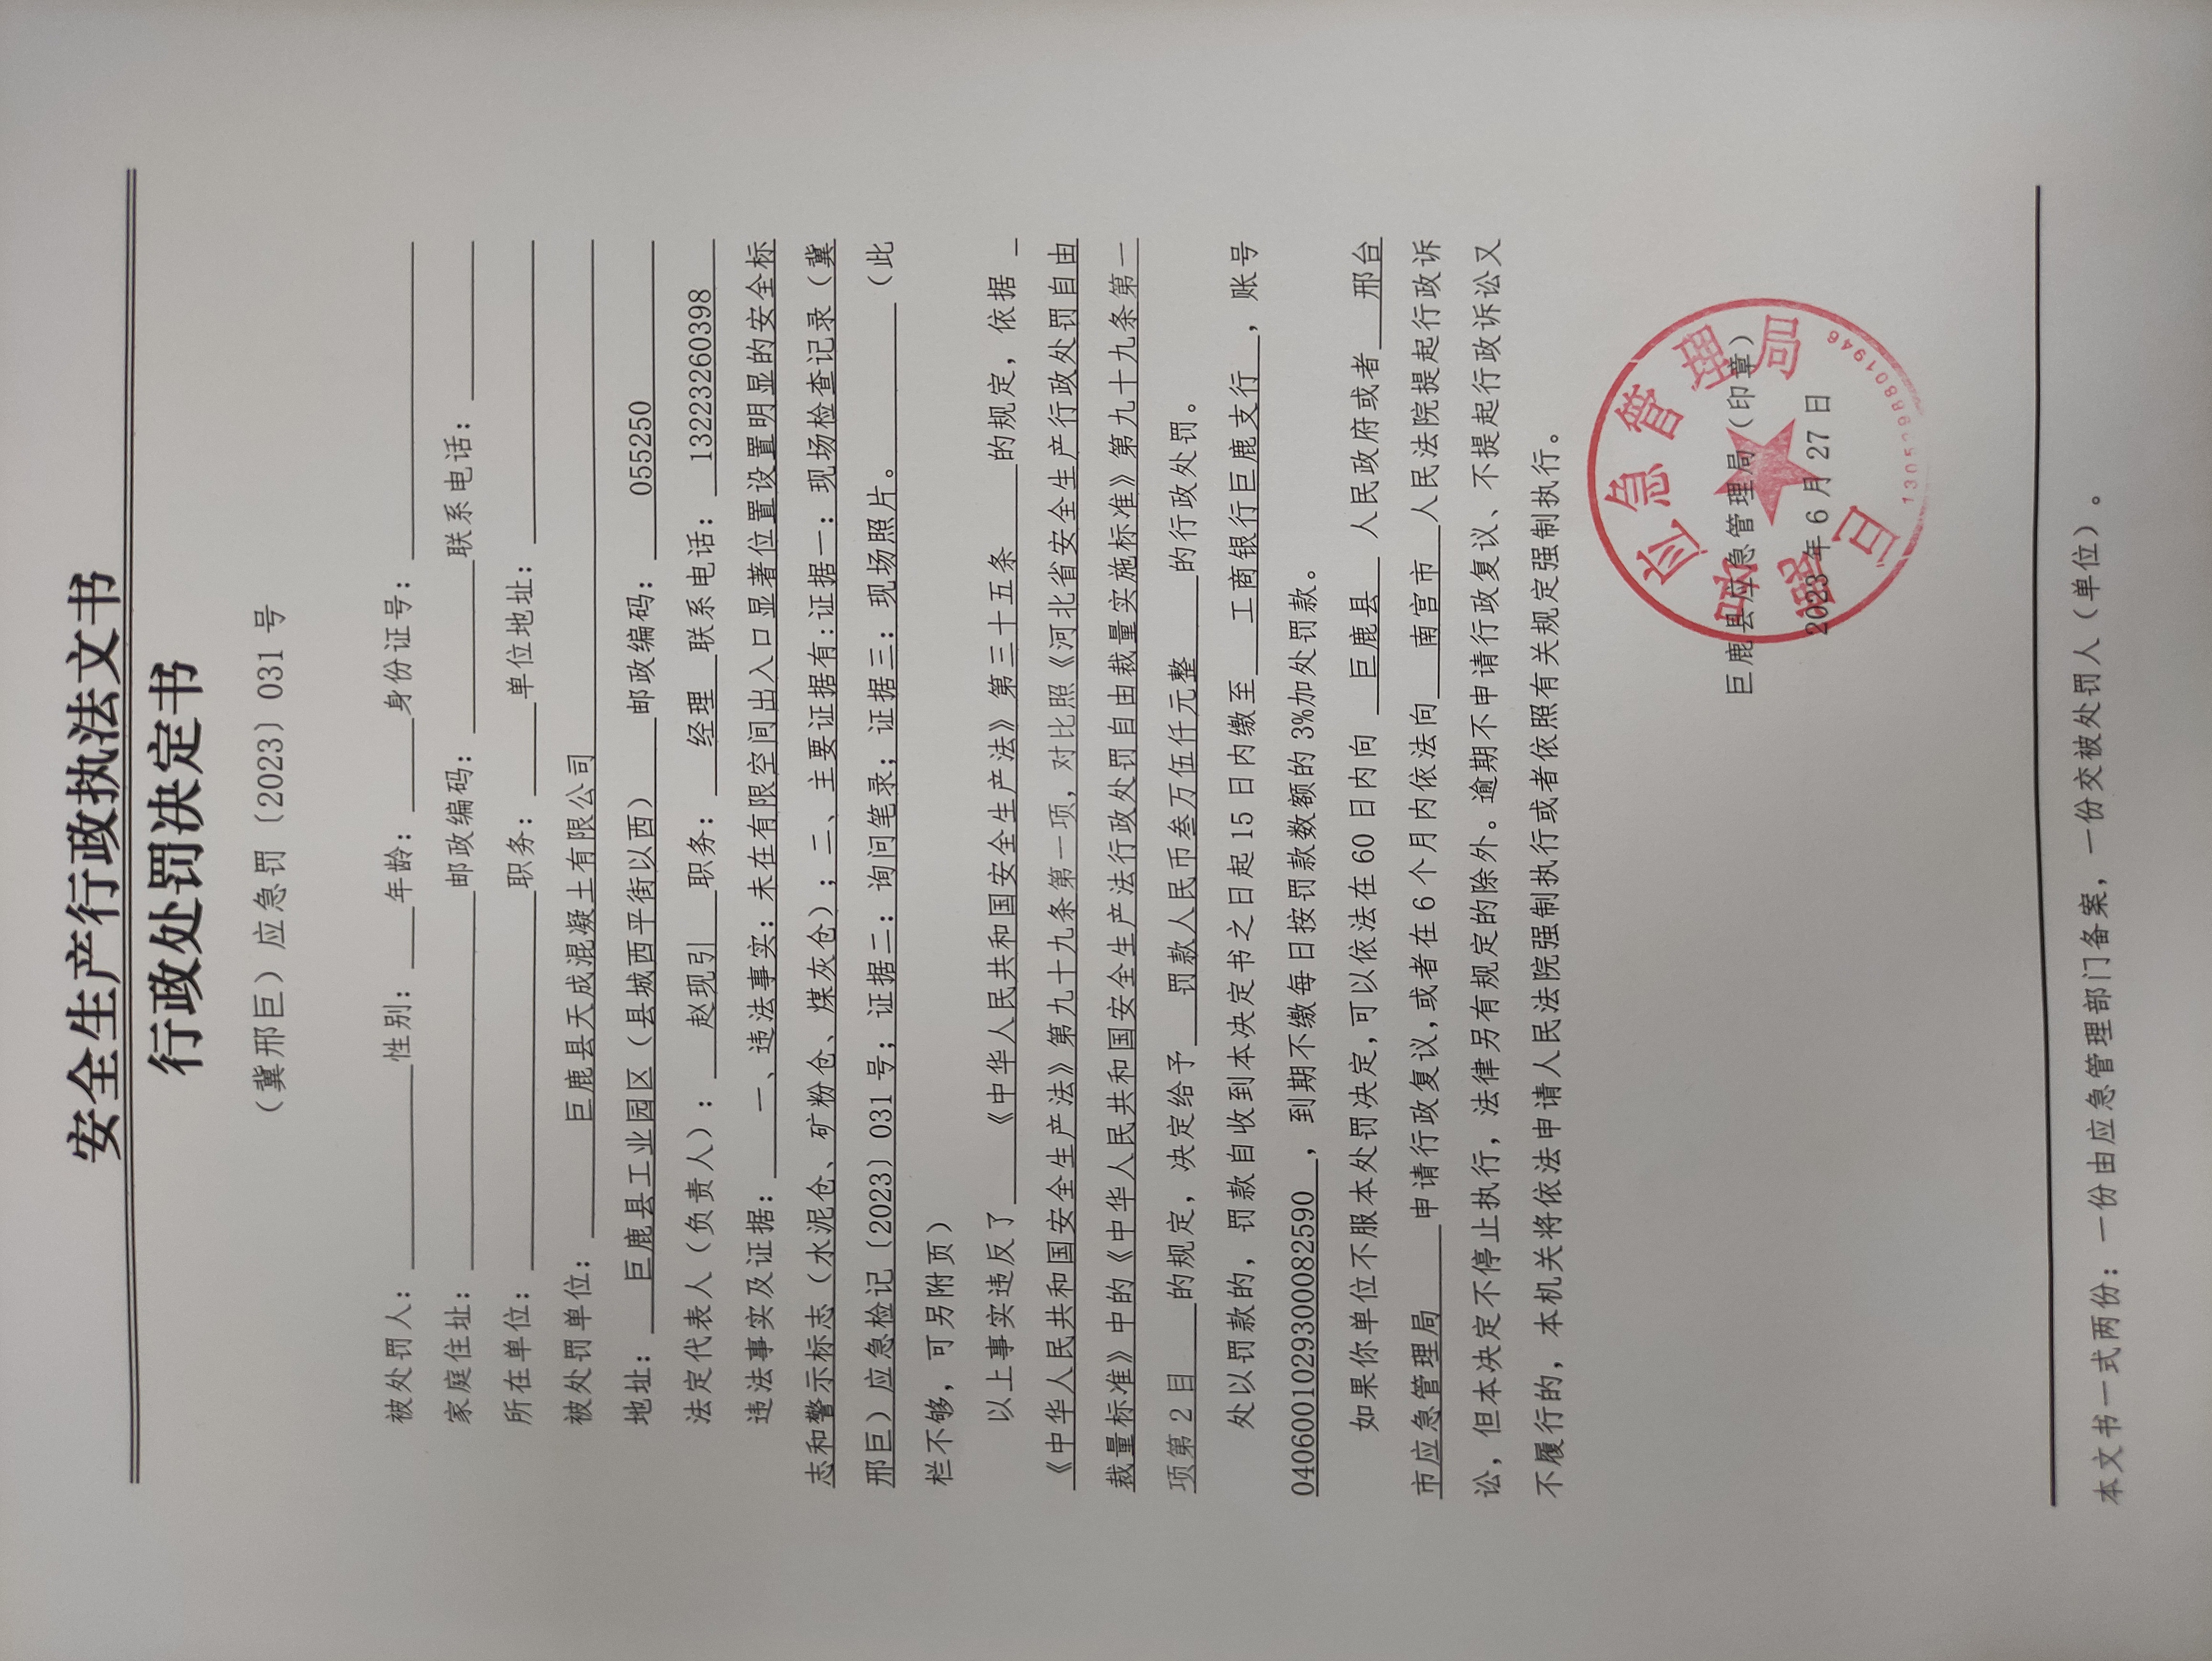 安全生产行政执法文书
行政处罚决定书
（冀邢巨）应急罚〔2023〕031号
被处罚人：性别：年龄：身份证号：
家庭住址：邮政编码：联系电话：
所在单位：职务：单位地址：
被处罚单位：巨鹿县天成混凝土有限公司
地址：巨鹿县工业园区（县城西平街以西）邮政编码：055250
法定代表人（负责人）：赵现引职务：经理联系电话：13223260398
违法事实及证据：一、违法事实：未在有限空间出入口显著位置设置明显的安全标
志和警示标志（水泥仓、矿粉仓、煤灰仓）；二、主要证据有：证据一：现场检查记录（冀
邢巨）应急检记〔2023〕031号；证据二：询问笔录；证据三：现场照片。（此
栏不够，可另附页）
以上事实违反了《中华人民共和国安全生产法》第三十五条的规定，依据
《中华人民共和国安全生产法》第九十九条第一项，对比照《河北省安全生产行政处罚自由
裁量标准》中的《中华人民共和国安全生产法行政处罚自由裁量实施标准》第九十九条第一
项第2目的规定，决定给予罚款人民币叁万伍仟元整的行政处罚。
处以罚款的，罚款自收到本决定书之日起15日内缴至工商银行巨鹿支行，账号
0406001029300082590，到期不缴每日按罚款数额的3%加处罚款。
如果你单位不服本处罚决定，可以依法在60日内向巨鹿县人民政府或者邢台
市应急管理局申请行政复议，或者在6个月内依法向南宫市人民法院提起行政诉
讼，但本决定不停止执行，法律另有规定的除外。逾期不申请行政复议、不提起行政诉讼又
不履行的，本机关将依法申请人民法院强制执行或者依照有关规定强制执行。
巨鹿县应急管理局（印章）
2023年6月27日
巨鹿县应急管理局
本文书一式两份：一份由应急管理部门备案，一份交被处罚人（单位）。